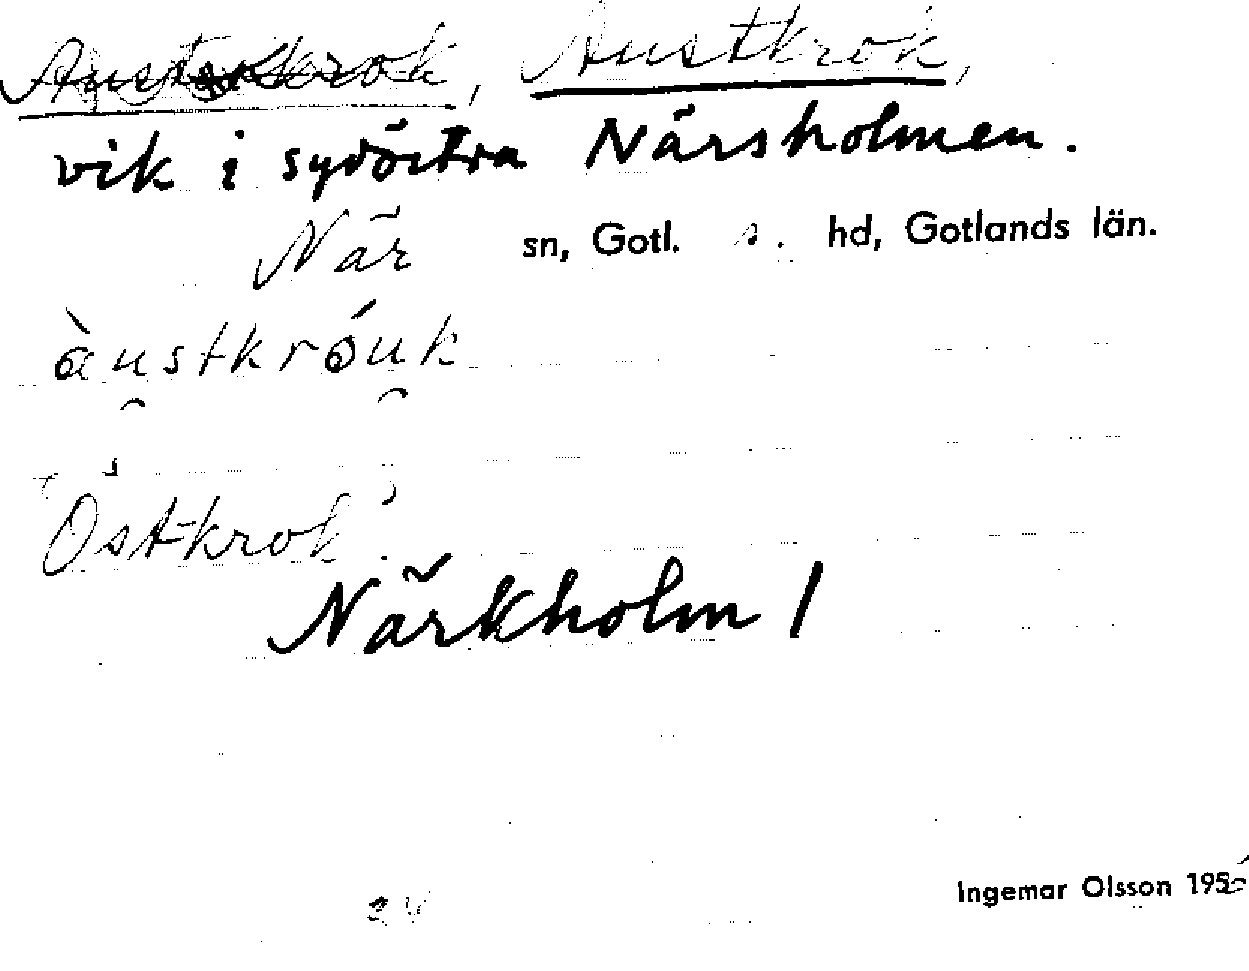 Austkrok, Austkrok,
vik i sydöstra Närsholmen.
När sn, Gotl. s. hd, Gotlands län.
àustkróuk
"Östkrok".
Närkholm 1
Ingemar Olsson 195